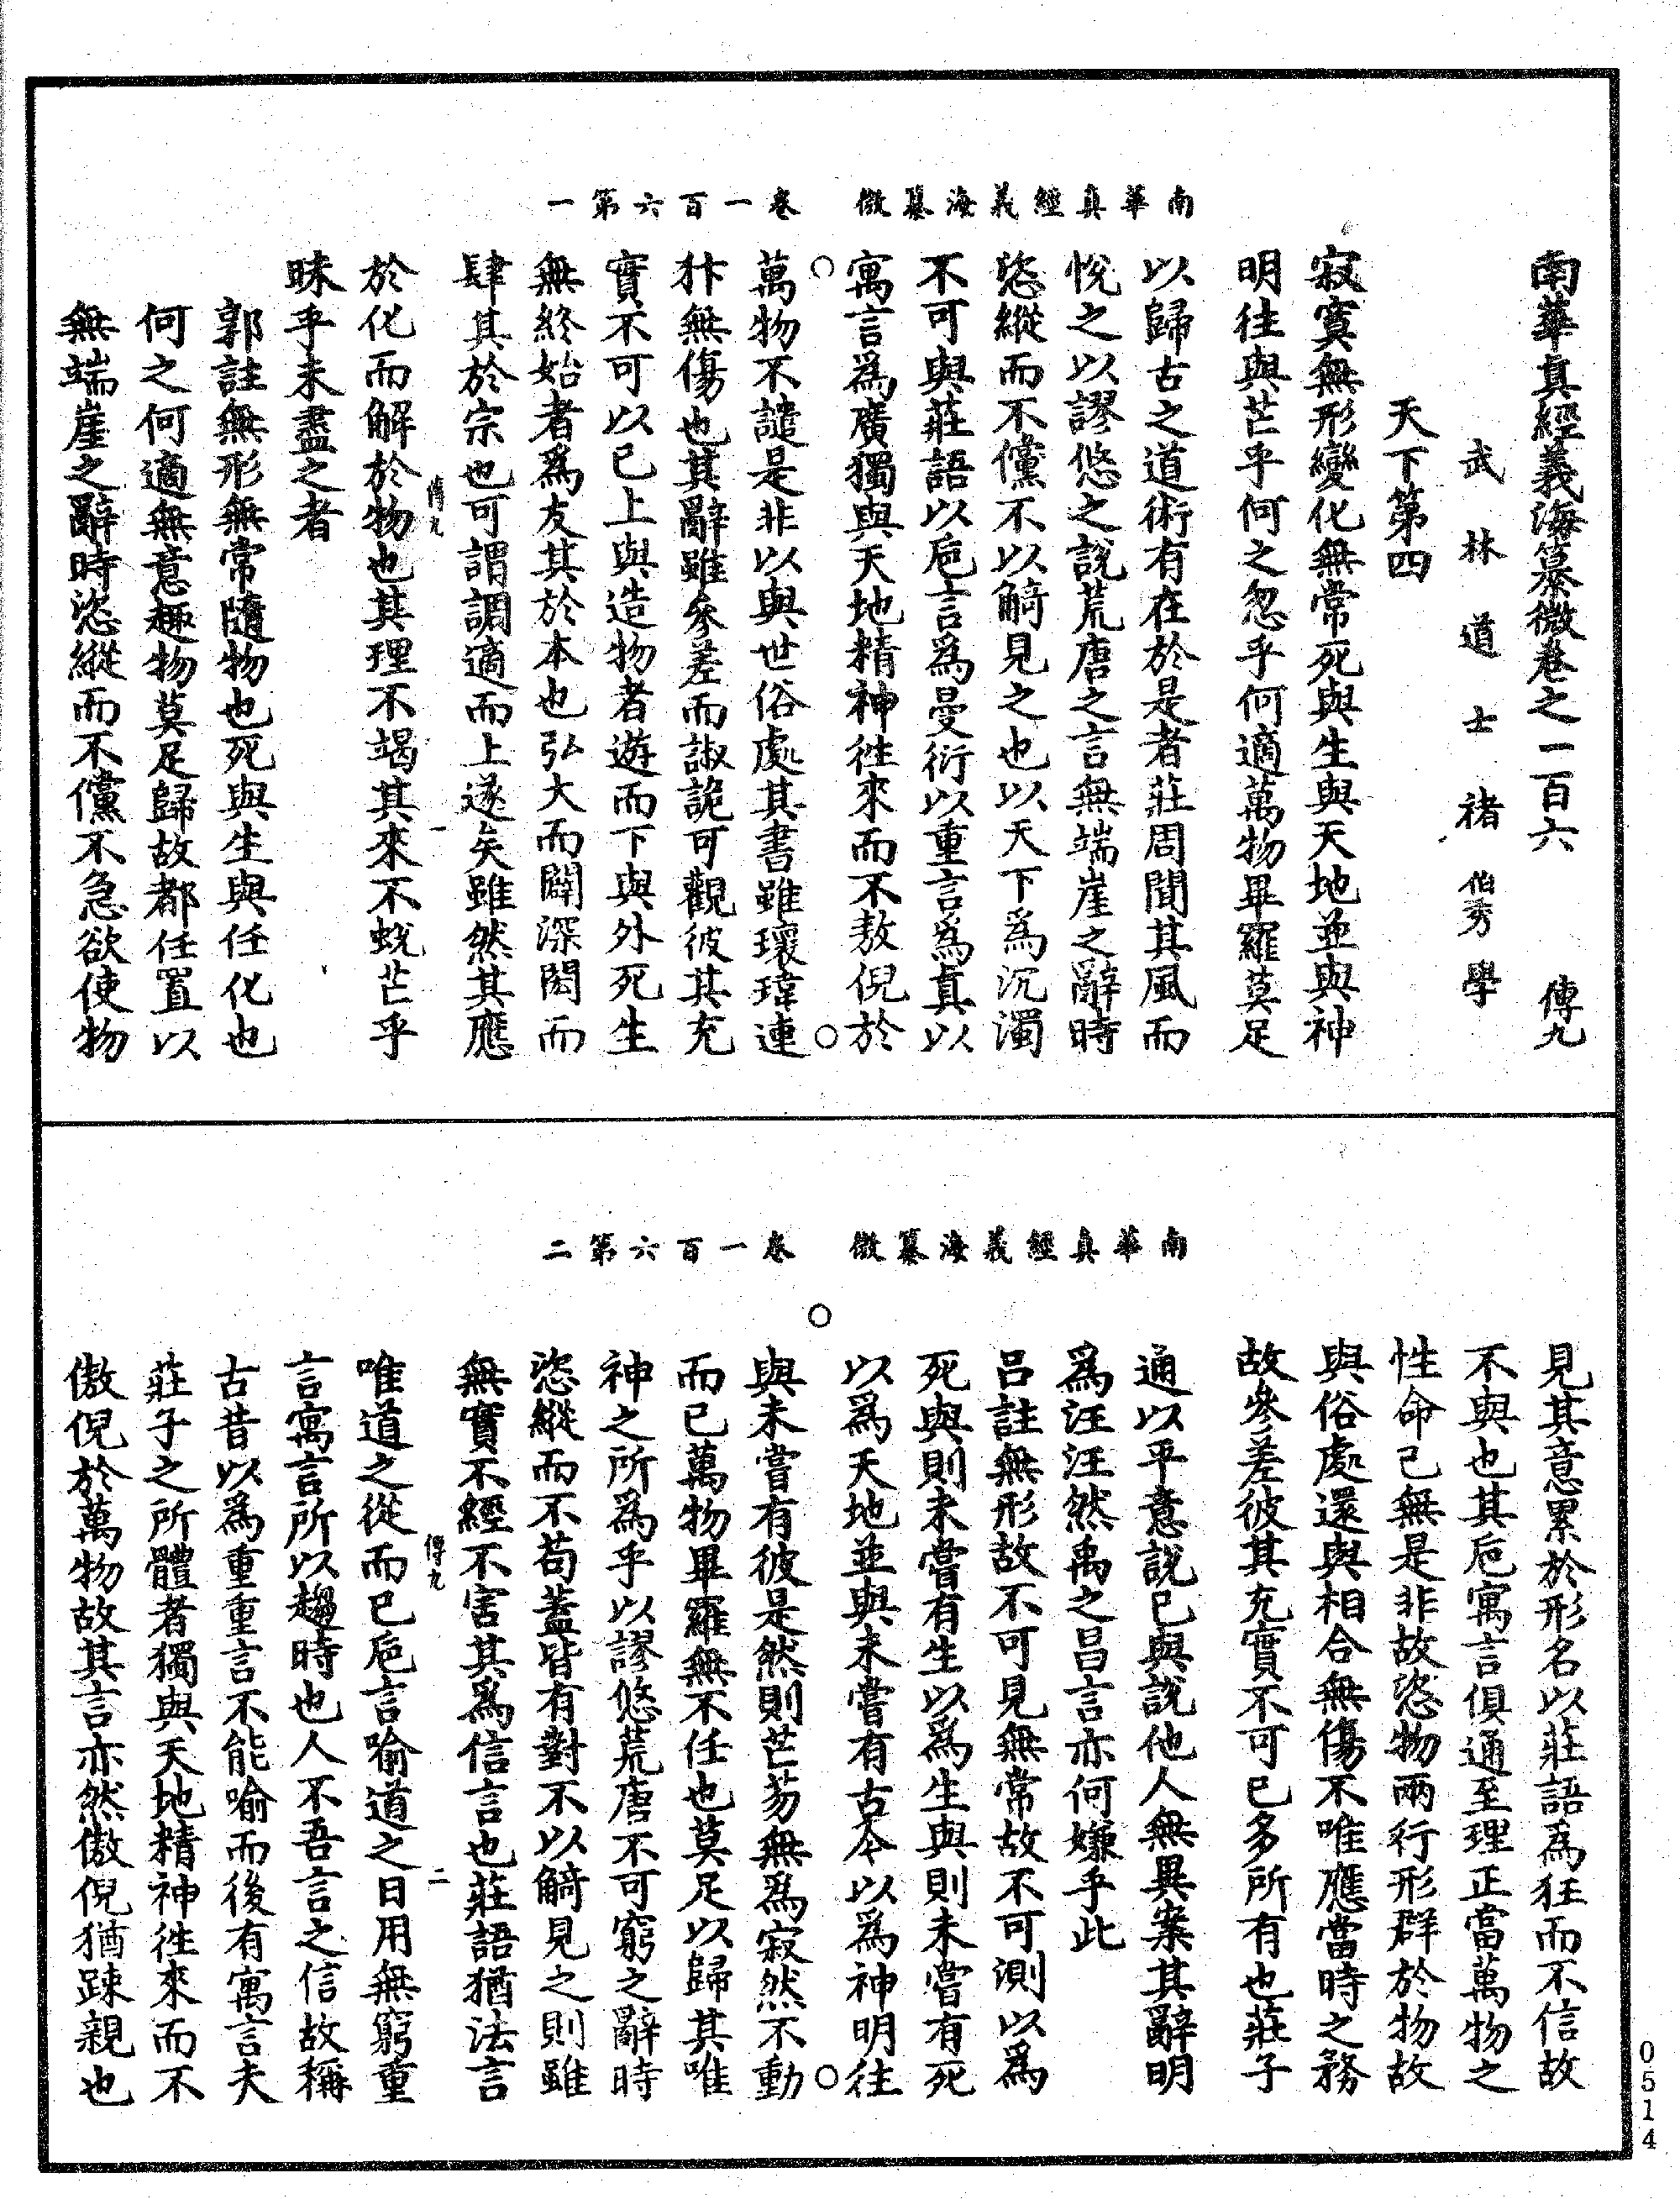 南華真經義海纂微 卷一百六第一
南華真經義海纂微卷之一百六 傳九
武林道士褚伯秀學
天下第四
寂寞無形變化無常死與生與天地並與神
明往與芒乎何之忽乎何適萬物畢羅莫足
以歸古之道術有在於是者莊周聞其風而
悅之以謬悠之說荒唐之言無端崖之辭時
恣縱而不儻不以觭見之也以天下為沉濁
不可與莊語以巵言為曼衍以重言為真以
寓言為廣獨與天地精神往來而不敖倪於
萬物不譴是非以與世俗處其書雖瓌瑋連
犿無傷也其辭雖參差而諔詭可觀彼其充
實不可以已上與造物者遊而下與外死生
無終始者為友其於本也弘大而闢深閎而
肆其於宗也可謂調適而上遂矣雖然其應
傳九 一
於化而解於物也其理不竭其來不蛻芒乎
昧乎未盡之者
郭註無形無常隨物也死與生與任化也
何之何適無意趣物莫足歸故都任置以
無端崖之辭時恣縱而不儻不急欲使物
南華真經義海纂微 卷一百六第二
見其意累於形名以莊語為狂而不信故
不與也其巵寓言俱通至理正當萬物之
性命己無是非故恣物兩行形群於物故
與俗處還與相合無傷不唯應當時之務
故參差彼其充實不可已多所有也莊子
通以平意說己與說他人無異案其辭明
為汪汪然禹之昌言亦何嫌乎此
呂註無形故不可見無常故不可測以為
死與則未嘗有生以為生與則未嘗有死
以為天地並與未嘗有古今以為神明往
與未嘗有彼是然則芒芴無為寂然不動
而已萬物畢羅無不任也莫足以歸其唯
神之所為乎以謬悠荒唐不可窮之辭時
恣縱而不苟蓋皆有對不以觭見之則雖
無實不經不害其為信言也莊語猶法言
傳九 二
唯道之從而已巵言喻道之日用無窮重
言寓言所以趨時也人不吾言之信故稱
古昔以為重重言不能喻而後有寓言夫
莊子之所體者獨與天地精神往來而不
傲倪於萬物故其言亦然傲倪猶踈親也
0514